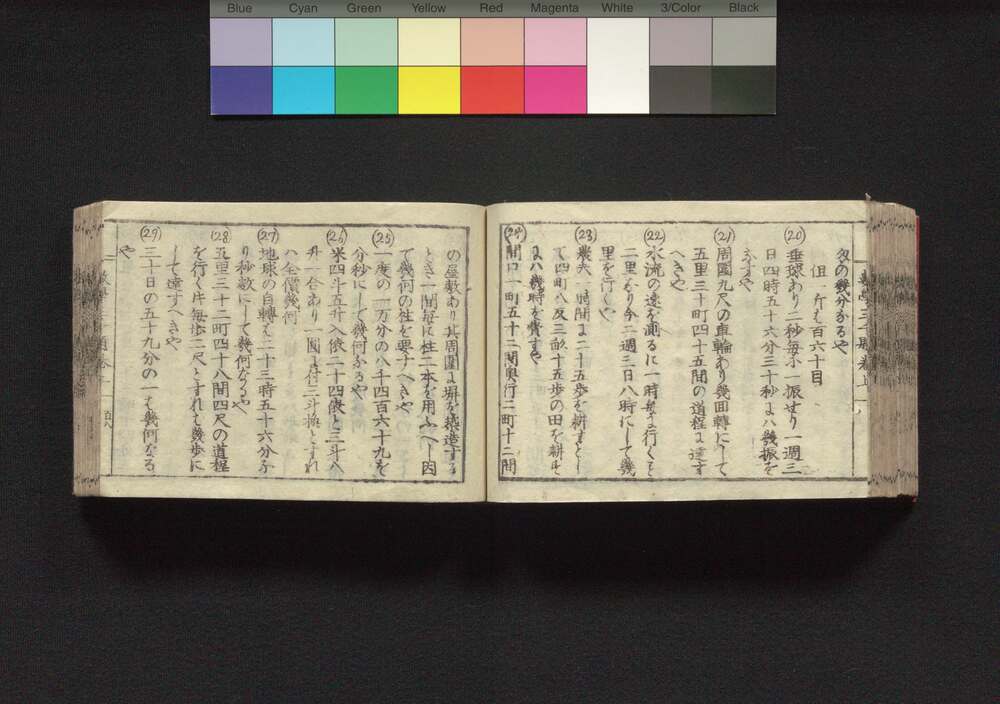 Blue Cyan Green Yellow Red Magenta White 3/Color Black
匁の幾分なるや
但一斤も百六十目
(20) 垂球あり二秒毎に一振せり一週三
日四時五十六分三十秒にハ幾振を
なすや
(21) 周圍九尺の車輪あり幾回轉にして
五里三十町四十五間の道程に達す
へきや
(22) 水流の速を測るに一時毎に行くこと
二里なり今二週三日八時にして幾
里を行くや
(23) 農夫一時間に二十五歩を耕すとし
て四町八反三畝十五歩の田を耕す
にハ幾時を費すや
(24) 間口一町五十二間奥行二町十二間
の屋敷あり其周圍に塀を築造する
とき一間毎に柱二本を用ふへし因
て幾何の柱を要すへきや
(25) 一度の一万分の八千四百六十九を
分秒にして幾何なるや
(26) 米四斗五升入俵二十四俵と三斗八
升一合あり一圓に付三斗換とすれ
ハ全價幾何
(27) 地球の自轉も二十三時五十六分な
り秒数にして幾何なるや
(28) 五里三十二町四十八間四尺の道程
を行く片毎歩二尺とすれも幾歩に
して達すへきや
(29) 三十日の五十九分の一も幾何なる
や